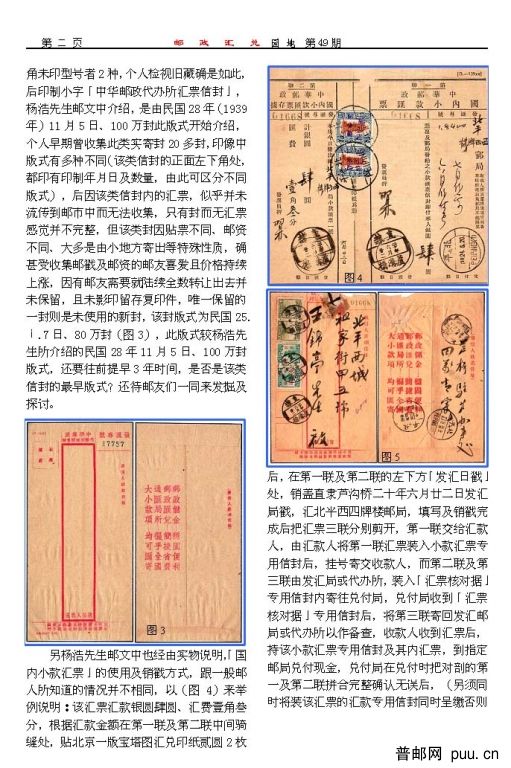 第二页
邮政汇兑园地 第49期
角未印型号者2种,个人检视旧藏确是如此,
后印制小字「中华邮政代办所汇票信封」,
杨浩先生邮文中介绍,是由民国28年(1939
年)11月5日、100万封此版式开始介绍,
个人早期曾收集此类实寄封20多封,印像中
版式有多种不同(该类信封的正面左下角处,
都印有印制年月日及数量,由此可区分不同
版式),后因该类信封内的汇票,似乎并未
流传到邮市中而无法收集,只有封而无汇票
感觉并不完整,但该类封因贴票不同、邮资
不同、大多是由小地方寄出等特殊性质,确
甚受收集邮戳及邮资的邮友喜爱且价格持续
上涨,因有邮友需要就陆续全数转让出去并
未保留,且未影印留存复印件,唯一保留的
一封则是未使用的新封,该封版式为民国25.
i.7日、80万封(图3),此版式较杨浩先
生所介绍的民国28年11月5日、100万封
版式,还要往前提早3年时间,是否是该类
信封的最早版式?还待邮友们一同来发掘及
探讨。
17757
邮政储金 稳固便利
邮政汇兑 简捷省费
通汇局所 遍于全国
大小款项 均可汇寄
图3
另杨浩先生邮文中也经由实物说明,「国
内小款汇票」的使用及销戳方式,跟一般邮
人所知道的情况并不相同,以(图4)来举
例说明:该汇票汇款银圆肆圆、汇费壹角叁
分,根据汇款金额在第一联及第二联中间骑
缝处,贴北京一版宝塔图汇兑印纸贰圆2枚
中华邮政
国内小款汇票
01668
图4
北平西城
祖家街甲五号
王锦亭先生 启
图5
后,在第一联及第二联的左下方「发汇日戳」
处,销盖直隶芦沟桥二十年六月廿二日发汇
局戳,汇北平西四牌楼邮局,填写及销戳完
成后把汇票三联分别剪开,第一联交给汇款
人,由汇款人将第一联汇票装入小款汇票专
用信封后,挂号寄交收款人,而第二联及第
三联由发汇局或代办所,装入「汇票核对据」
专用信封内寄往兑付局,兑付局收到「汇票
核对据」专用信封后,将第三联寄回发汇邮
局或代办所以作备查,收款人收到汇票后,
持该小款汇票专用信封及其内汇票,到指定
邮局兑付现金,兑付局在兑付时把对剖的第
一及第二联拼合完整确认无误后,(另须同
时将装该汇票的汇款专用信封同时呈缴否则
普邮网 puu.cn